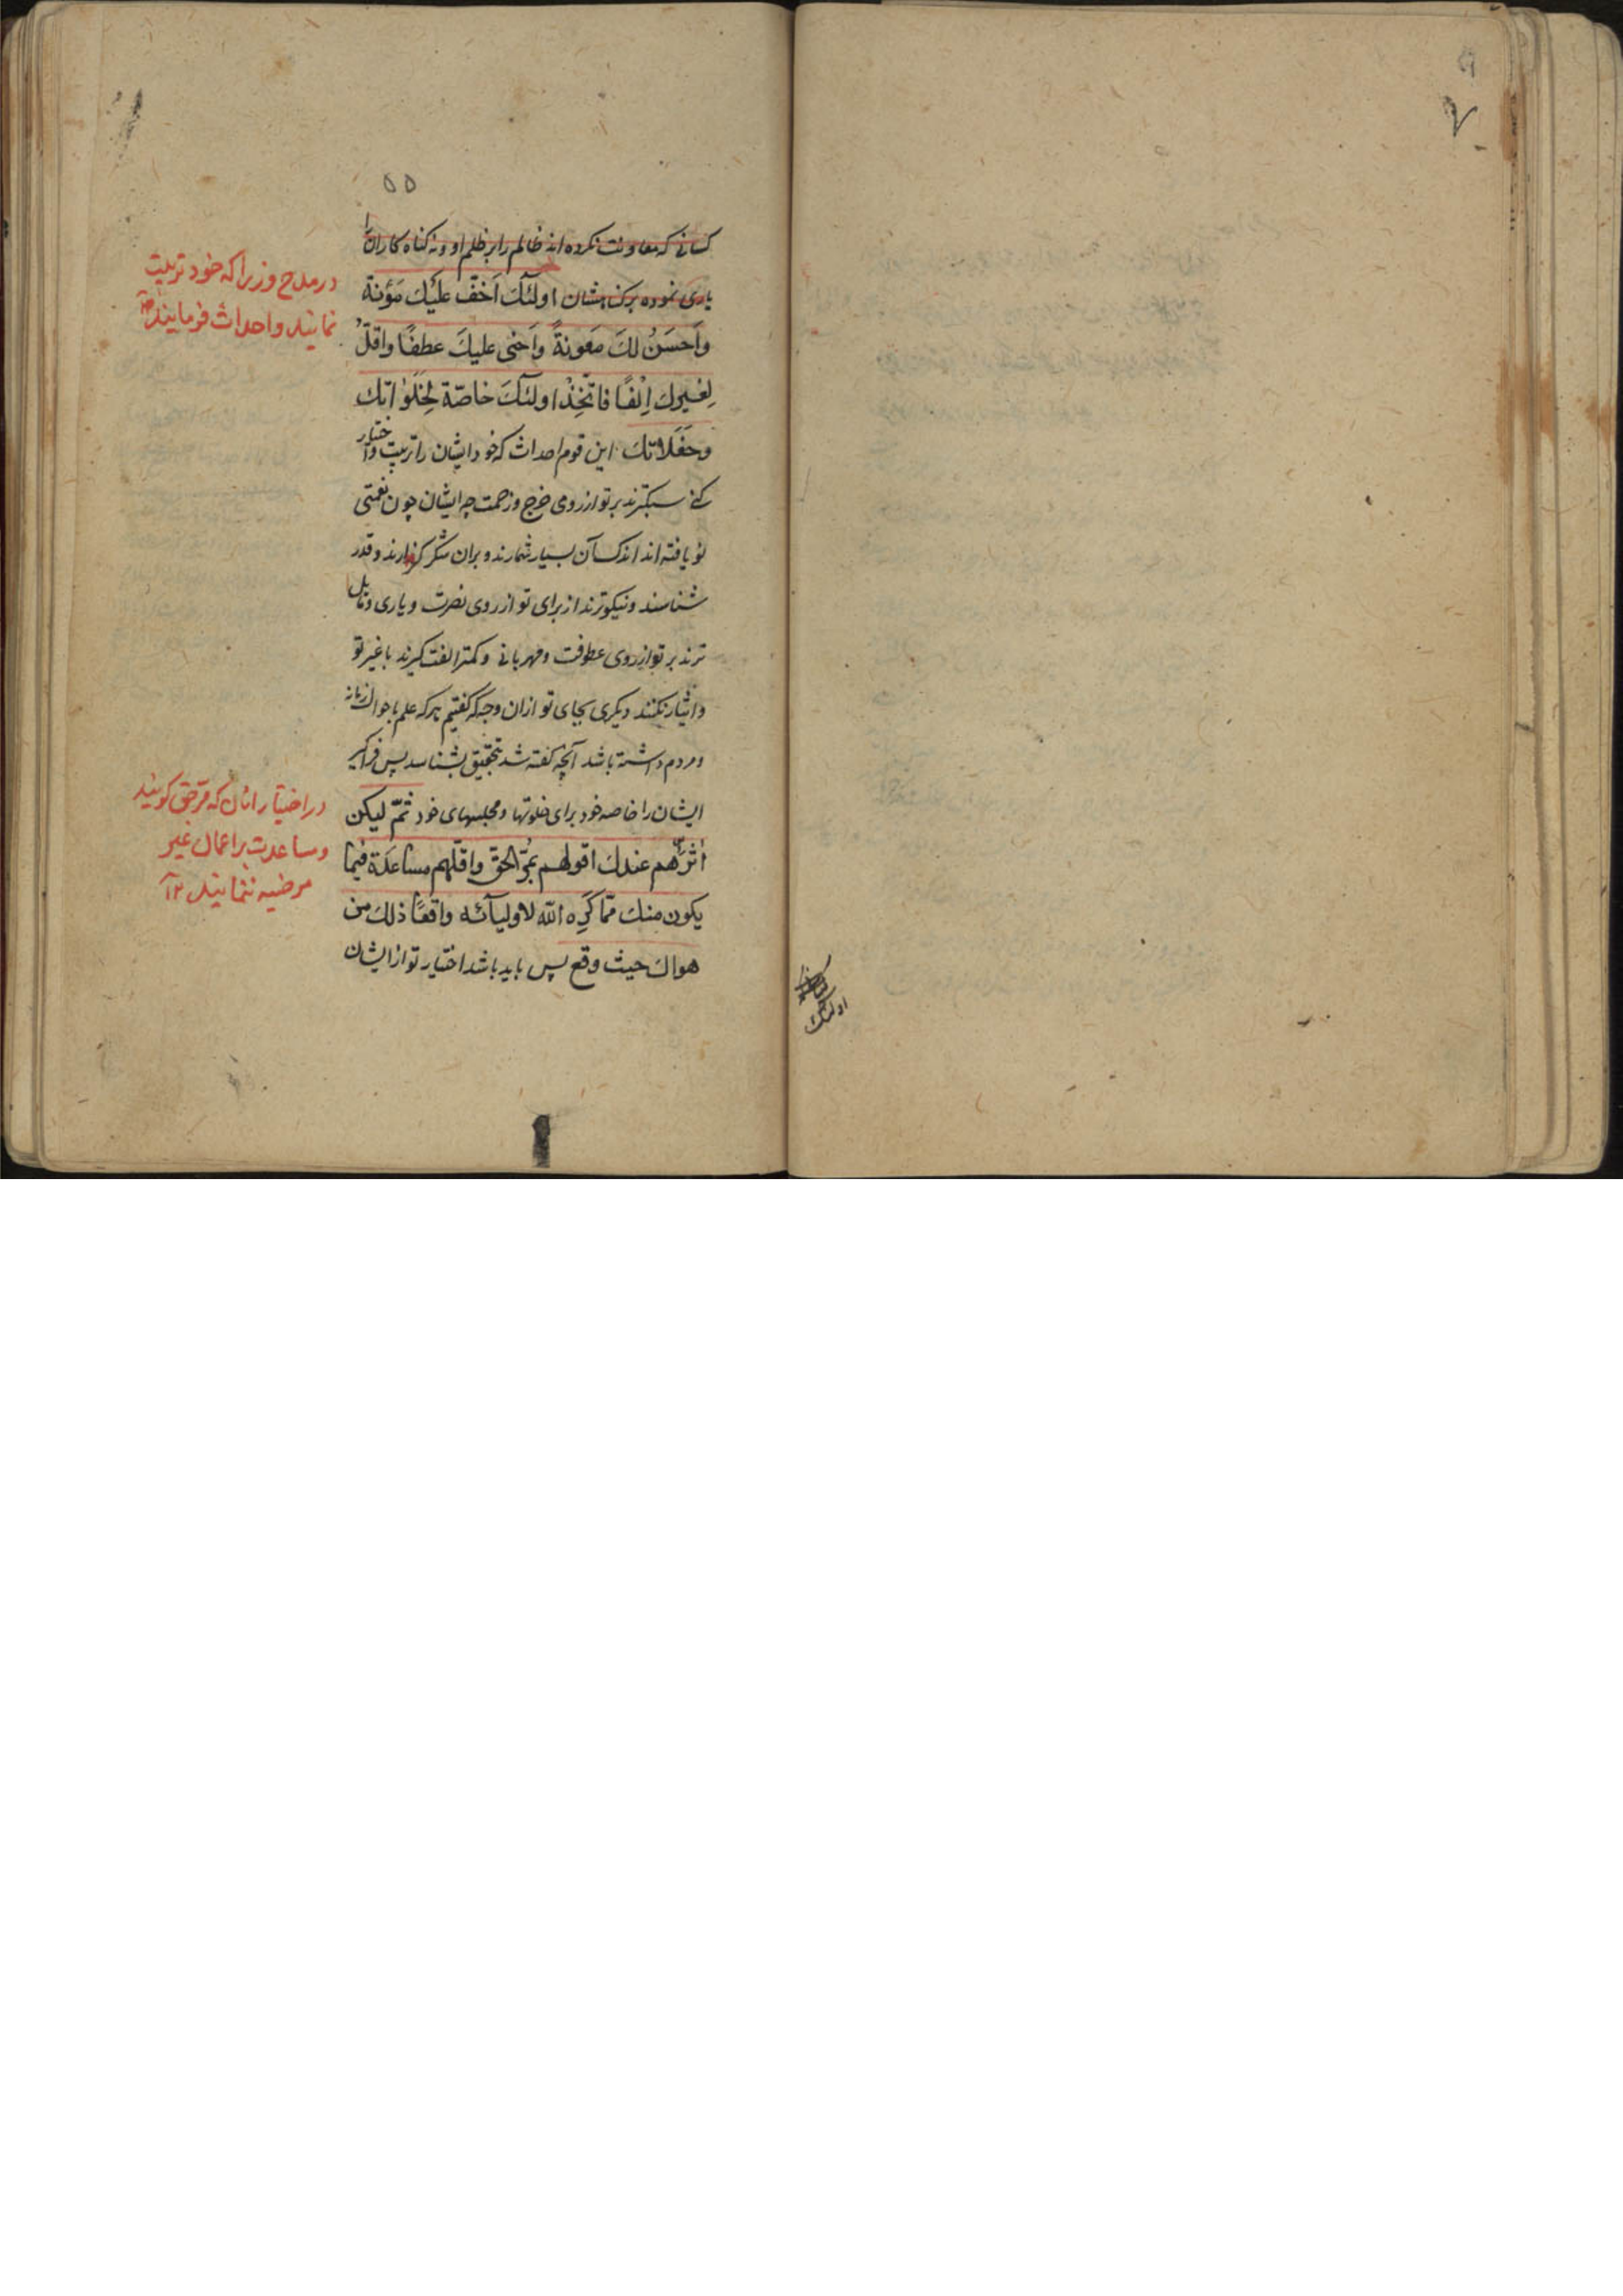 ۵۵
کسانی که معاونت نکرده اند ظالم را بر ظلم او و نه کناه کاران را
یاری نموده بر کناهشان اولئك اَخَفُّ عليكَ مَؤُنة
واَحسَنُ لكَ مَعونةً واَحنى عليكَ عطفًا واقلُّ
لِغيرك اِلْفًا فاتّخِذْ اولئكَ خاصّة لِخَلَواتك
وحَفَلاتكَ این قوم احداث که خود ایشان را تربیت و اختیار
کنی سبکترند بر تو از روی خرج و زحمت چه ایشان چون نعمتی
نو یافته اند اندک آن بسیار شمارند و بران شکر کزارند و قدر
شناسند و نیکوترند از برای تو از روی نصرت و یاری و مایل
ترند بر تو از روی عطوفت و مهربانی و کمتر الفت کیرند با غیر تو
و ایثار نکنند دیکری بجای تو ازان وجه که کفتیم هر که علم باحوال زمانه
و مردم داشته باشد آنچه کفته شد بتحقیق بشناسد پس فراکیر
ایشان را خاصه خود برای خلوتها و مجلسهای خود ثمّ ليكن
اٰثرهم عندك اقولهم بمُرّ الحقّ واقلّهم مساعدة فيما
يكون منك ممّا كَرِه الله لاوليآئه واقعًا ذلك من
هواك حيث وقع پس باید باشد اختیار تو از ایشان
در مدح وزرا که خود تربیت
نمایند و احداث فرمایند
در اختیار انان که مرّ حق کویند
و مساعدت بر اعمال غیر
مرضیه ننمایند ۱۲
۷
اولئك